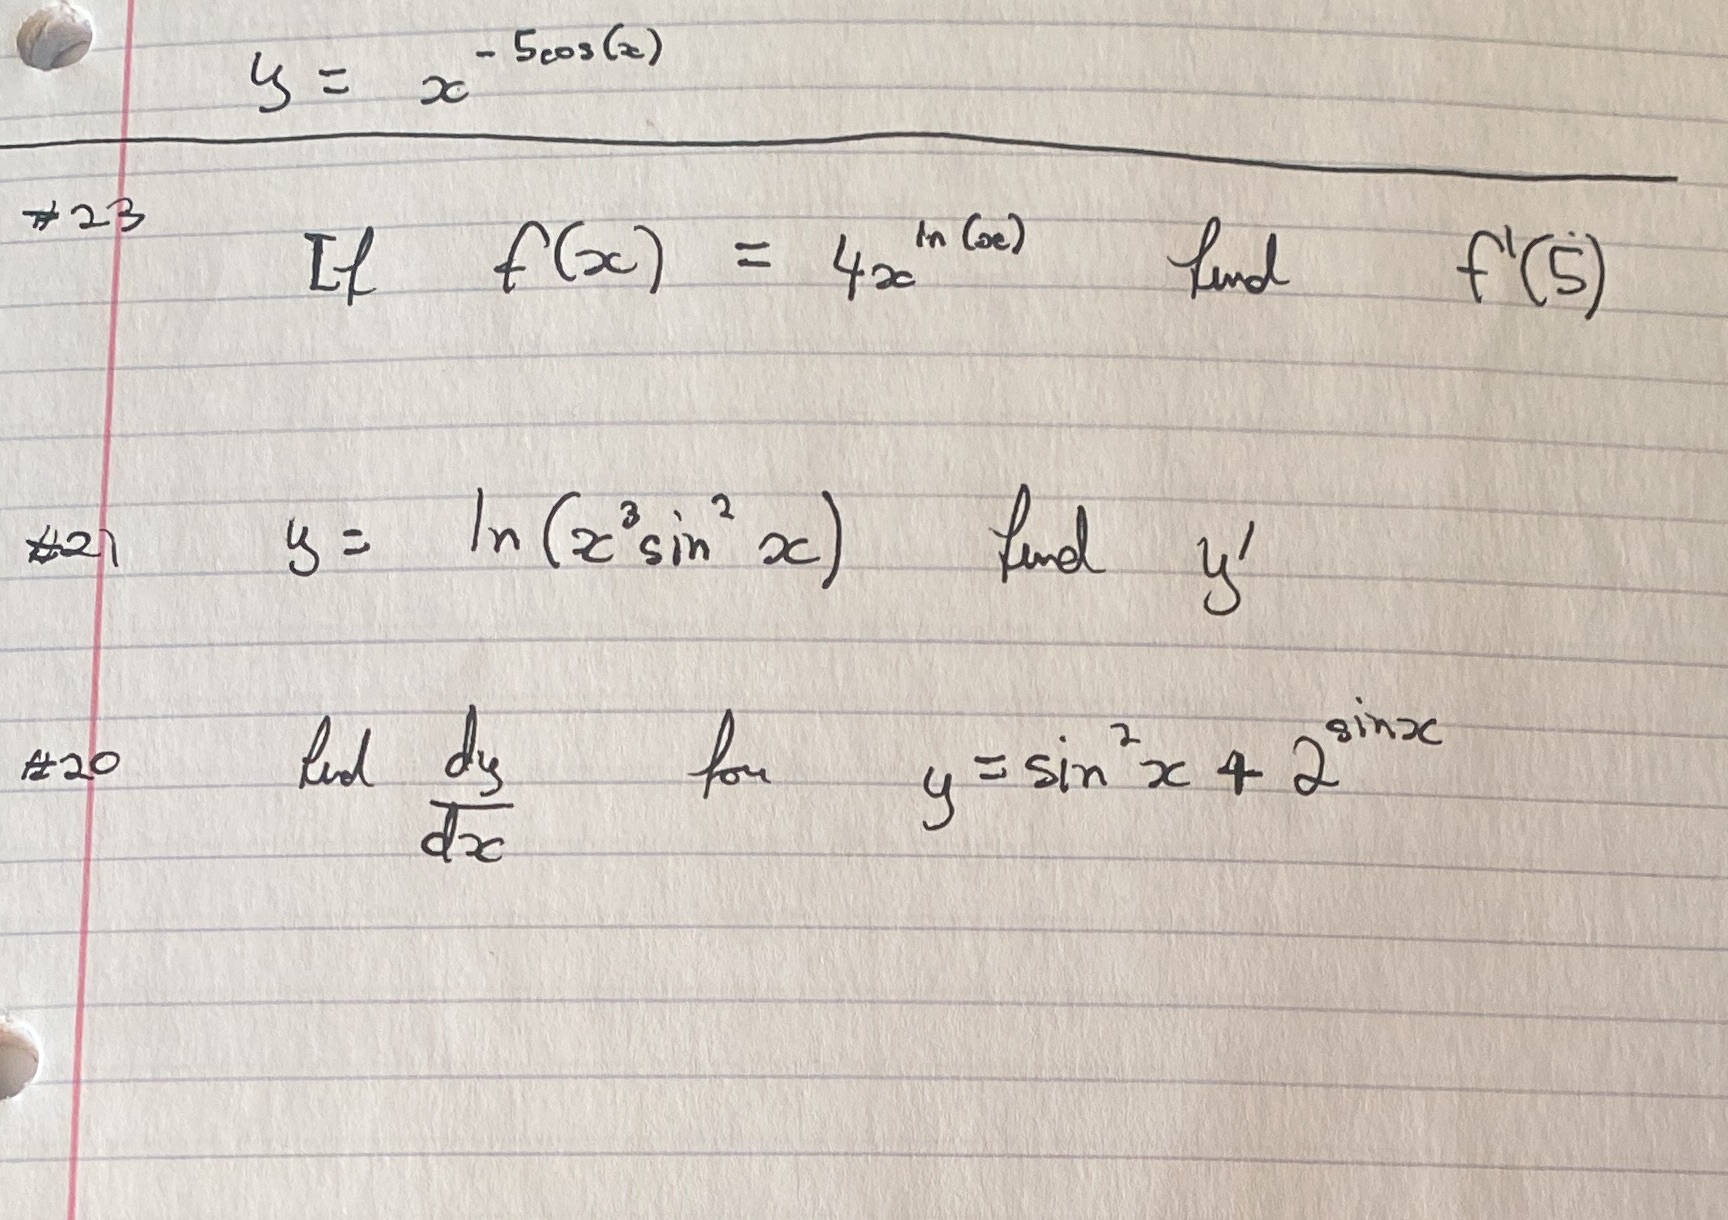 y = x^{-5cos(x)}
#23 If f(x) = 4x^{ln(x)} find f'(5)
#21 y = ln(x³sin²x) find y'
#20 find dy/dx for y = sin²x + 2^{sinx}